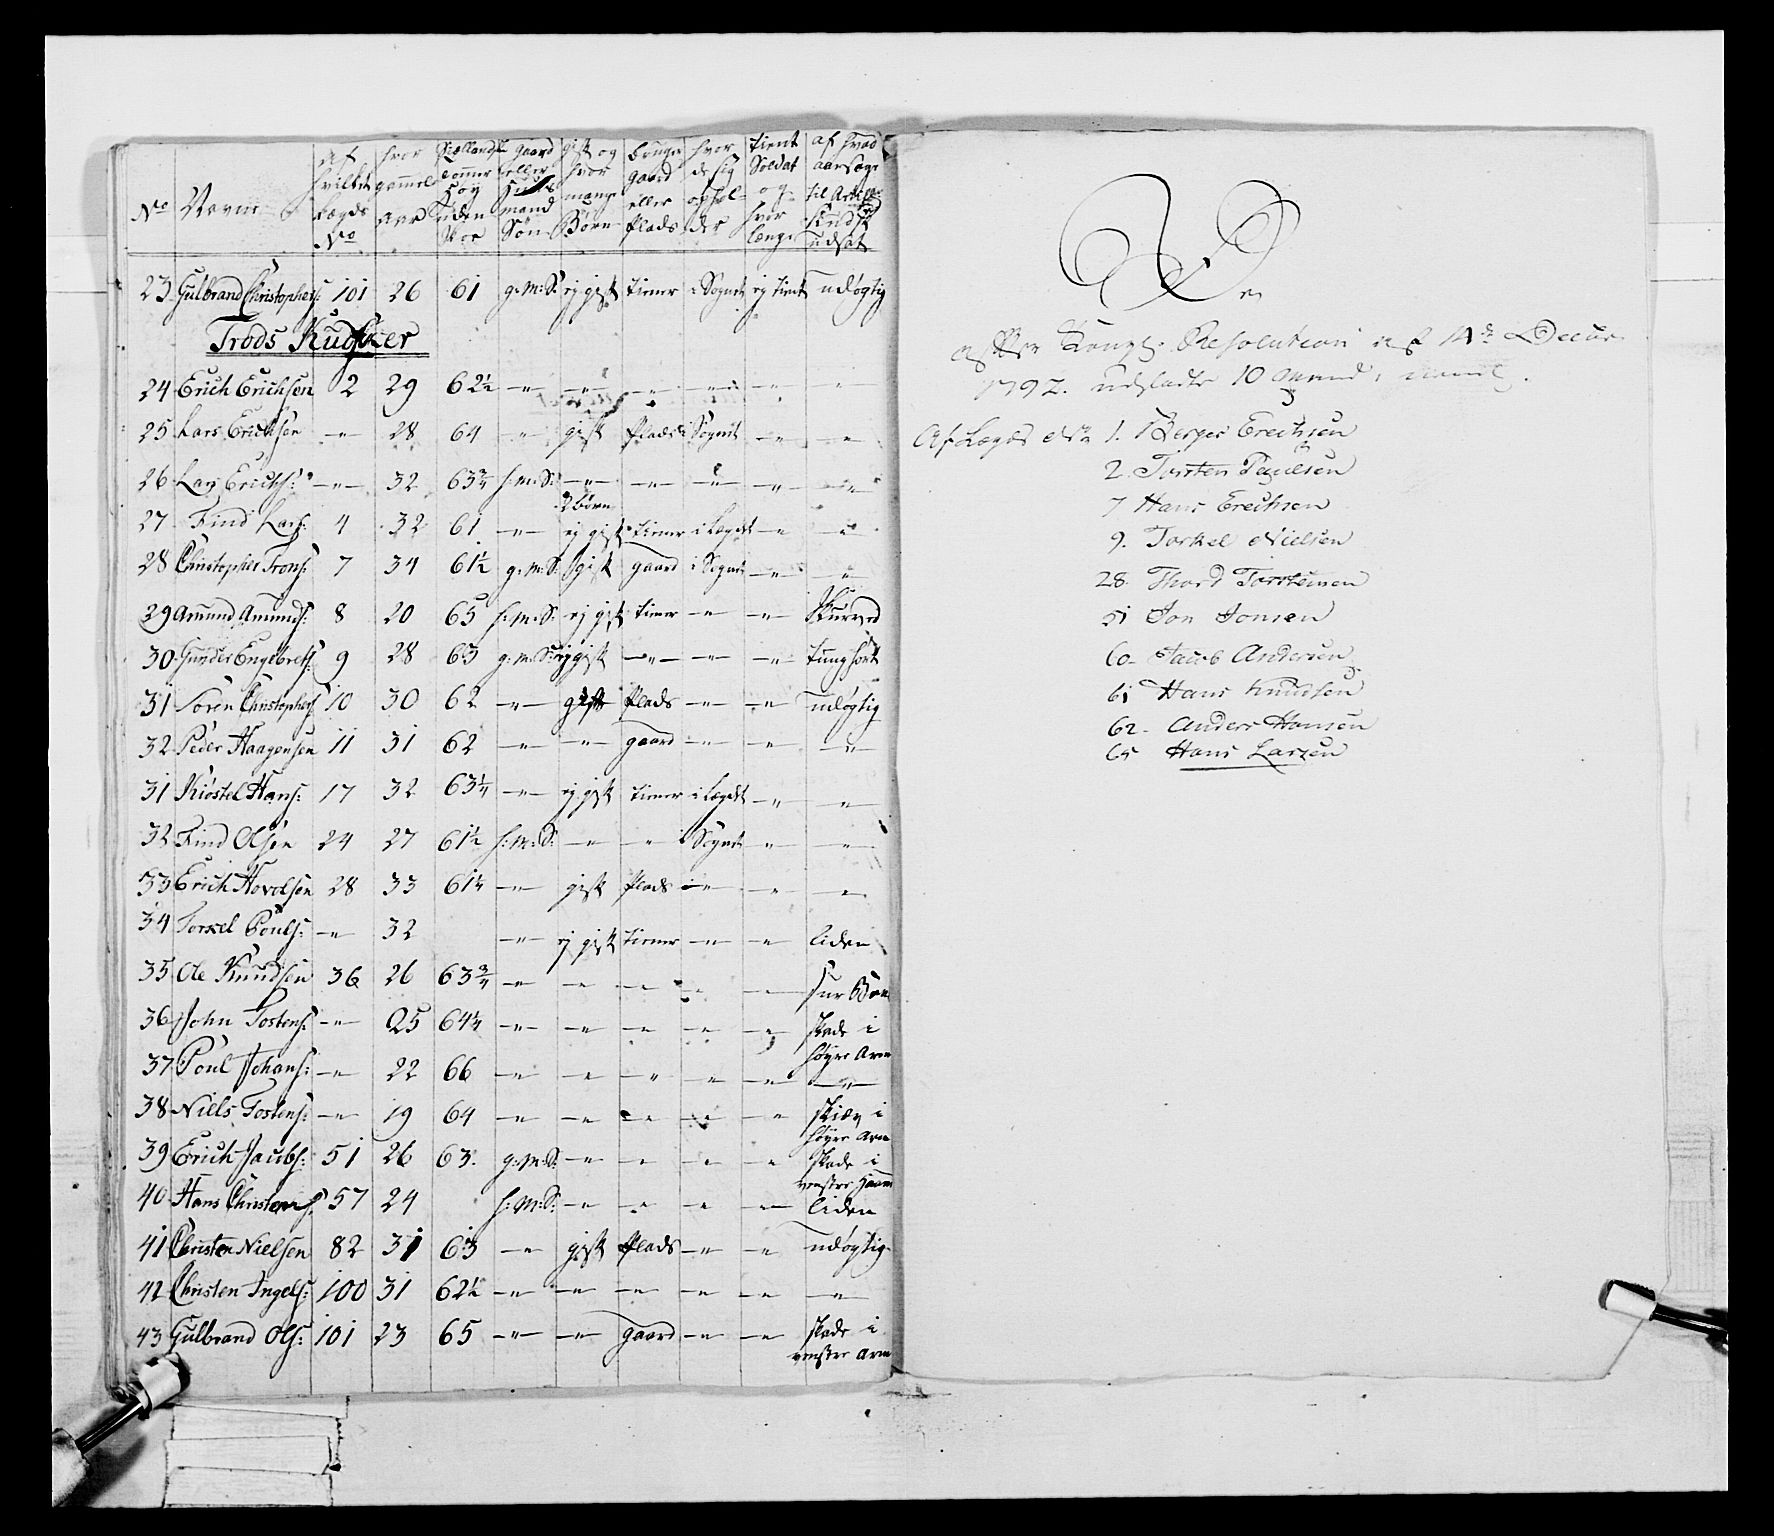 No Navne af hvilket Lægds No hvor gammel aar Siællandsk tommer høy uden Skoe gaard eller Huus mand Søn gift og hvor mange Børn bruger gaard eller Plads hvor de sig ophol- der tient Soldat og hvor længe af hvad aarsage til udsat
23 Gulbrand Christophers: 101 26 61 g:M:S: ej gift tiener i Sognet ej tient udøgtig
Trods Kudsker
24 Erich Erichsen 2 29 62½ —"— —"— —"— —"— —"— "
25 Lars Erichsen —"— 28 64 —"— gift Plads i Sognet —"— —"—
26 Lars Erichs: —"— 32 63¾ h:M:S: —"— —"— —"— —"— —"—
2 børn
27 Find Lars: 4 32 61 —"— ej gift tiener i Lægdet —"— —"—
28 Christopher Trons: 7 34 61½ g:M:S: gift gaard i Sognet —"— —"—
29 Amund Amunds: 8 20 65 h:M:S: ej gift tiener —"— —"— Skurved
30 Gunder Engebrets: 9 28 63 g:M:S: ej gift —"— —"— —"— tunghørt
31 Søren Christophers: 10 30 62 —"— gift Plads —"— —"— udøgtig
32 Peder Haagensen 11 31 62 —"— —"— gaard —"— —"— —"—
31 Kiøstel Hans: 17 32 63¼ —"— ej gift tiener i Lægdet —"— —"—
32 Find Olsen 24 27 61½ h:M:S: —"— " i Sognet " —"—
33 Erich Hovelsen 28 33 61¼ —"— gift Plads —"— —"— —"—
34 Torkel Pouls: —"— 32 —"— ej gift tiener —"— —"— liden
35 Ole Knudsen 36 26 63¾ —"— —"— —"— " —"—
36 John Tostens: —"— 25 64¼ —"— —"— —"— —"— —"— skade i
høyre Arm
37 Poul Johans: —"— 22 66 —"— —"— " —"— —"— —"—
38 Niels Tostens: —"— 19 64 —"— —"— —"— —"— —"— skiæv i
høyre Arm
39 Erich Jacobs: 51 26 63 g:M:S: —"— —"— —"— —"— skade i
venstre Haand
40 Hans Christens: 57 24 h:M:S: —"— —"— —"— —"— liden
41 Christen Nielsen 82 31 63 —"— gift Plads —"— —"— udøgtig
42 Christen Ingels: 100 31 62½ —"— —"— —"— —"— —"— —"—
43 Gulbrand Ols: 101 23 65 —"— —"— gaard —"— —"— skade i
venstre Arm
De
efter Kongl: Resolution af 14de Decbr
1792. udsladte 10 Mand,
Af Lægds No 1. Berger Erechsen
2. Torsten Poulsen
7 Hans Erechsen
9. Torkel Nielsen
28. Thord Torstensen
51 Jon Jonsen
60 Jacob Andersen
61 Hans Knudsen
62. Anders Hansen
65 Hans Larsen